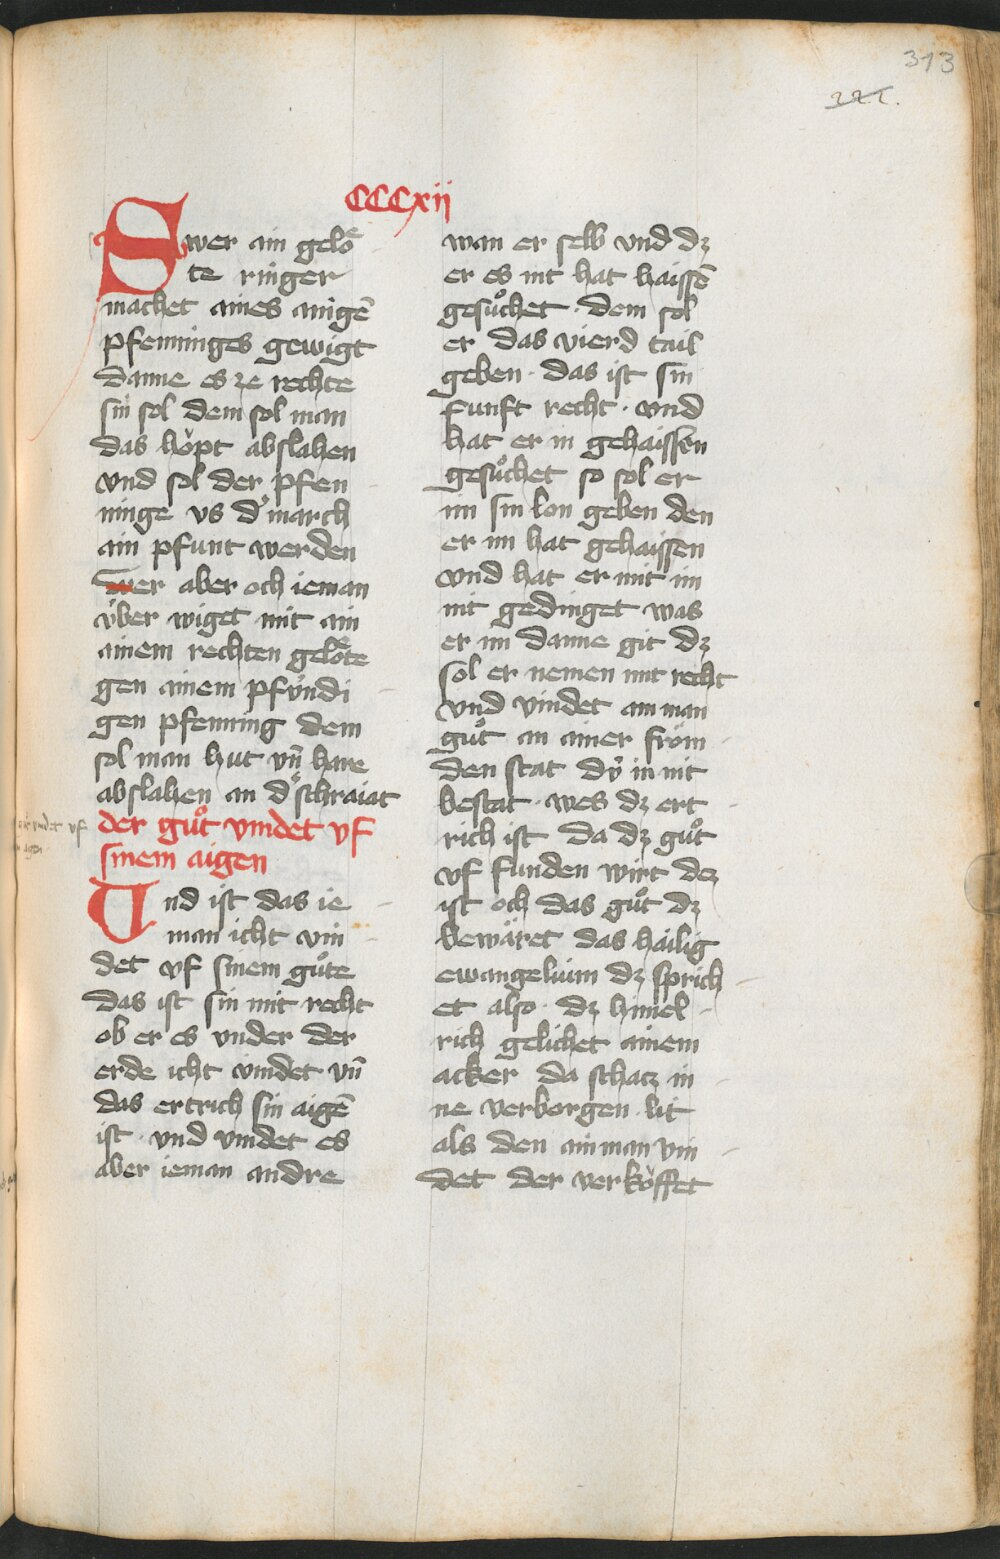 313
CCCxii
Swer ain geloͤ
te ringer
machet aines ainigē
pfenninges gewigt
danne es ze rechte
sin sol dem sol man
das hoͤpt abslahen
vnd sol der pfen
ninge vs d' march
ain pfunt werden
wer aber och ieman
v̈ber wiget mit ain
ainem rechten geloͤte
gen ainem pfv̈ndi
gen pfenning dem
sol man hut vn̄ hare
abslahen an d' schraiat
der guͦt vindet vf
sinem aigen
Vnd ist das ie
man icht vin
det vf sinem guͦte
das ist sin mit recht
ob er es vnder der
erde icht vindet vn̄
das ertrich sin aigē
ist · vnd vindet es
aber ieman andre
wan er selb vnd dz
er es nit hat haissē
gesuͦchet · dem sol
er das vierd tail
geben · das ist sin
funft recht · vnd
hat er in gehaissen
gesuͦchet so sol er
im sin lon geben den
er im hat gehaissen
vnd hat er mit im
nit gedinget was
er im danne git dz
sol er nemen mit recht
vnd vindet ain man
guͦt an ainer froͤm
den stat dv̈ in nit
bestat · wes dz ert
rich ist da dz guͦt
vf funden wirt dez
ist och das guͦt dz
bewaͤret das hailig
ewangelium dz sprich
et also · dz himel
rich gelichet ainem
acker da schacz in
ne verborgen lit
als den ain man vin
det der verkoͤffet